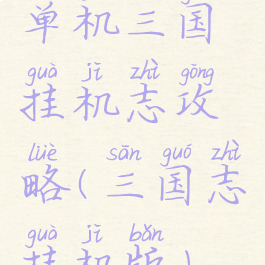 单机三国
guà jī zhì gōng
挂机志攻
lüè sān guó zhì
略(三国志
guà jī bǎn
挂机版)